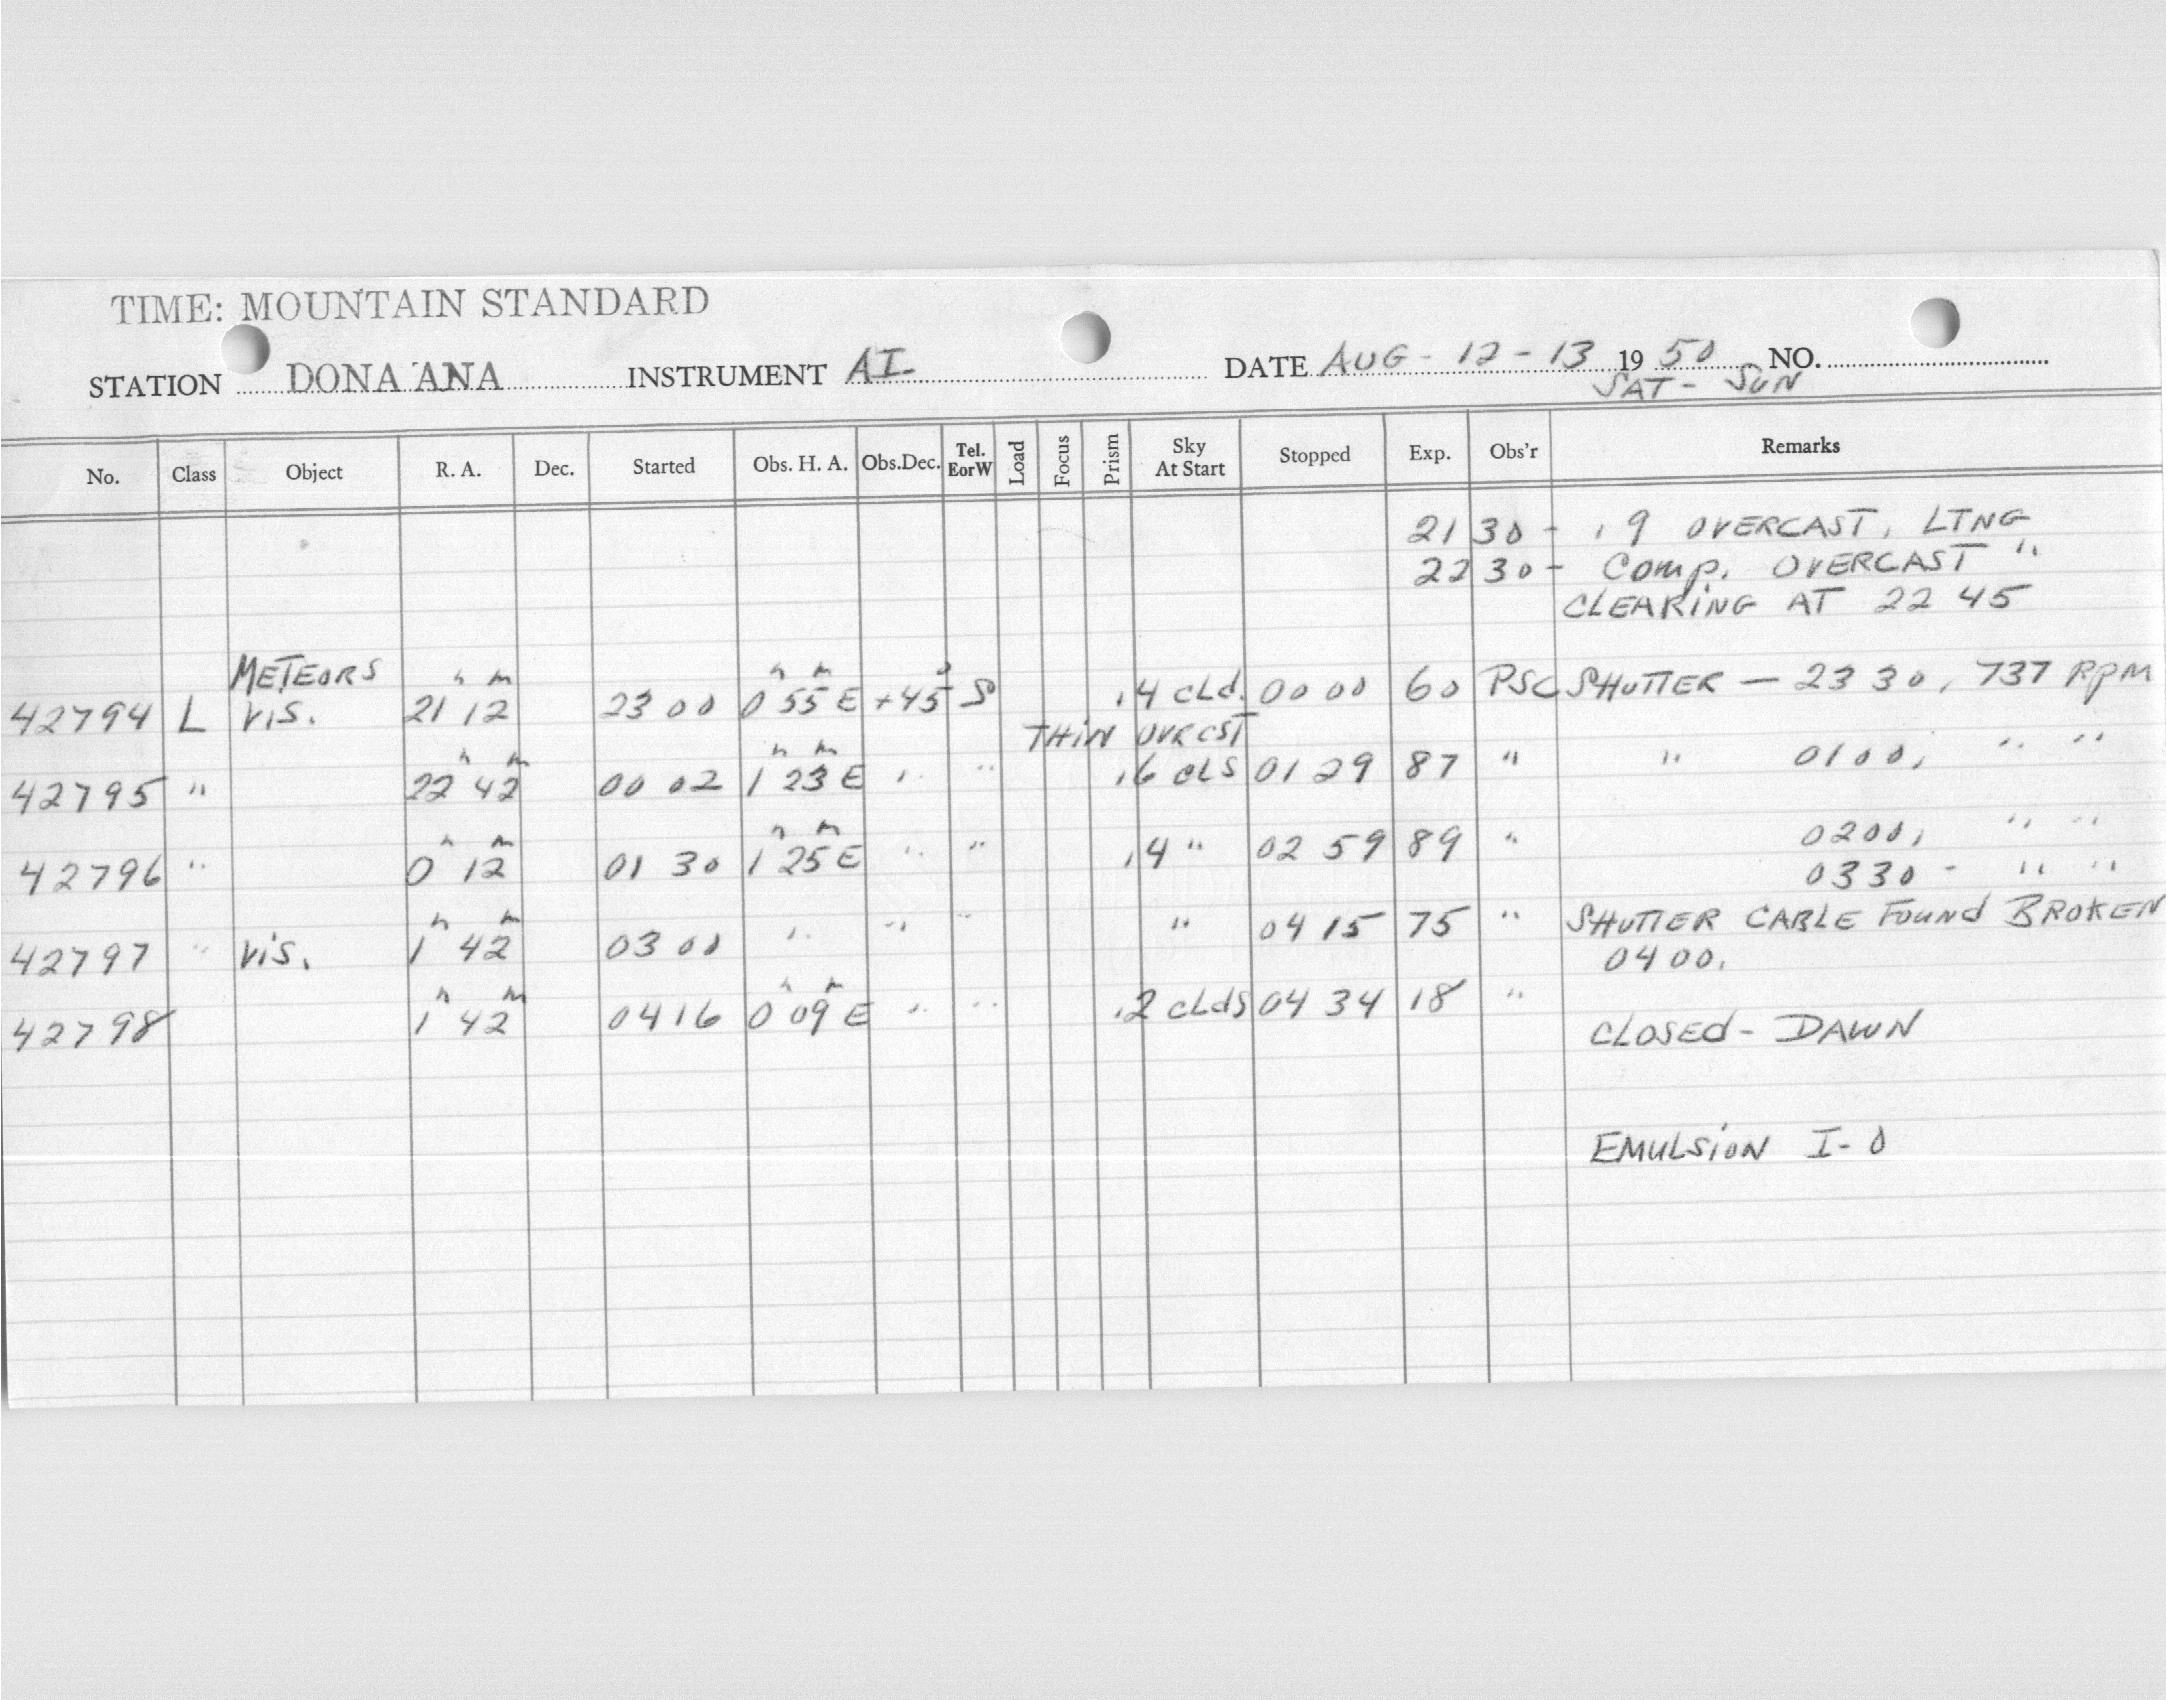 TIME: MOUNTAIN STANDARD
STATION DONA ANA INSTRUMENT AI DATE AUG - 12 - 13 19 50 NO.
SAT - SUN
No. Class Object R. A. Dec. Started Obs. H. A. Obs.Dec. Tel. EorW Load Focus Prism Sky At Start Stopped Exp. Obs'r Remarks
21 30 - .9 OVERCAST, LTNG
22 30 - Comp. OVERCAST "
CLEARING AT 22 45
METEORS
42794 L VIS. 21h 12m 23 00 0h 55m E +45° S .4 CLd. 00 00 60 PSC SHUTTER — 23 30, 737 RPM
THIN OVRCST
42795 " 22h 42m 00 02 1h 23m E " " .6 CLS 01 29 87 " " 0100, " "
42796 " 0h 12m 01 30 1h 25m E " " .4 " 02 59 89 " 0200, " "
0330 - " "
42797 " VIS. 1h 42m 03 00 " " " " 04 15 75 " SHUTTER CABLE FOUNd BROKEN
0400.
42798 1h 42m 04 16 0h 09m E " " .2 CLdS 04 34 18 "
CLOSEd - DAWN
EMULSION I-O